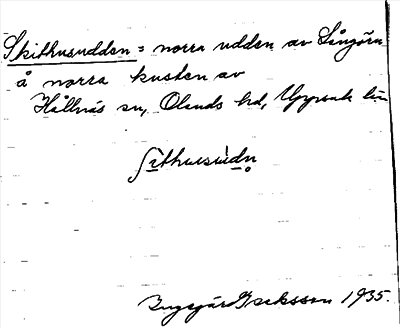 Skithusudden = norra udden av Långörn
å norra kusten av
Hållnäs sn, Olands hd, Uppsala län
ʃìthusùdn̥
Ingegär Jsaksson 1935.